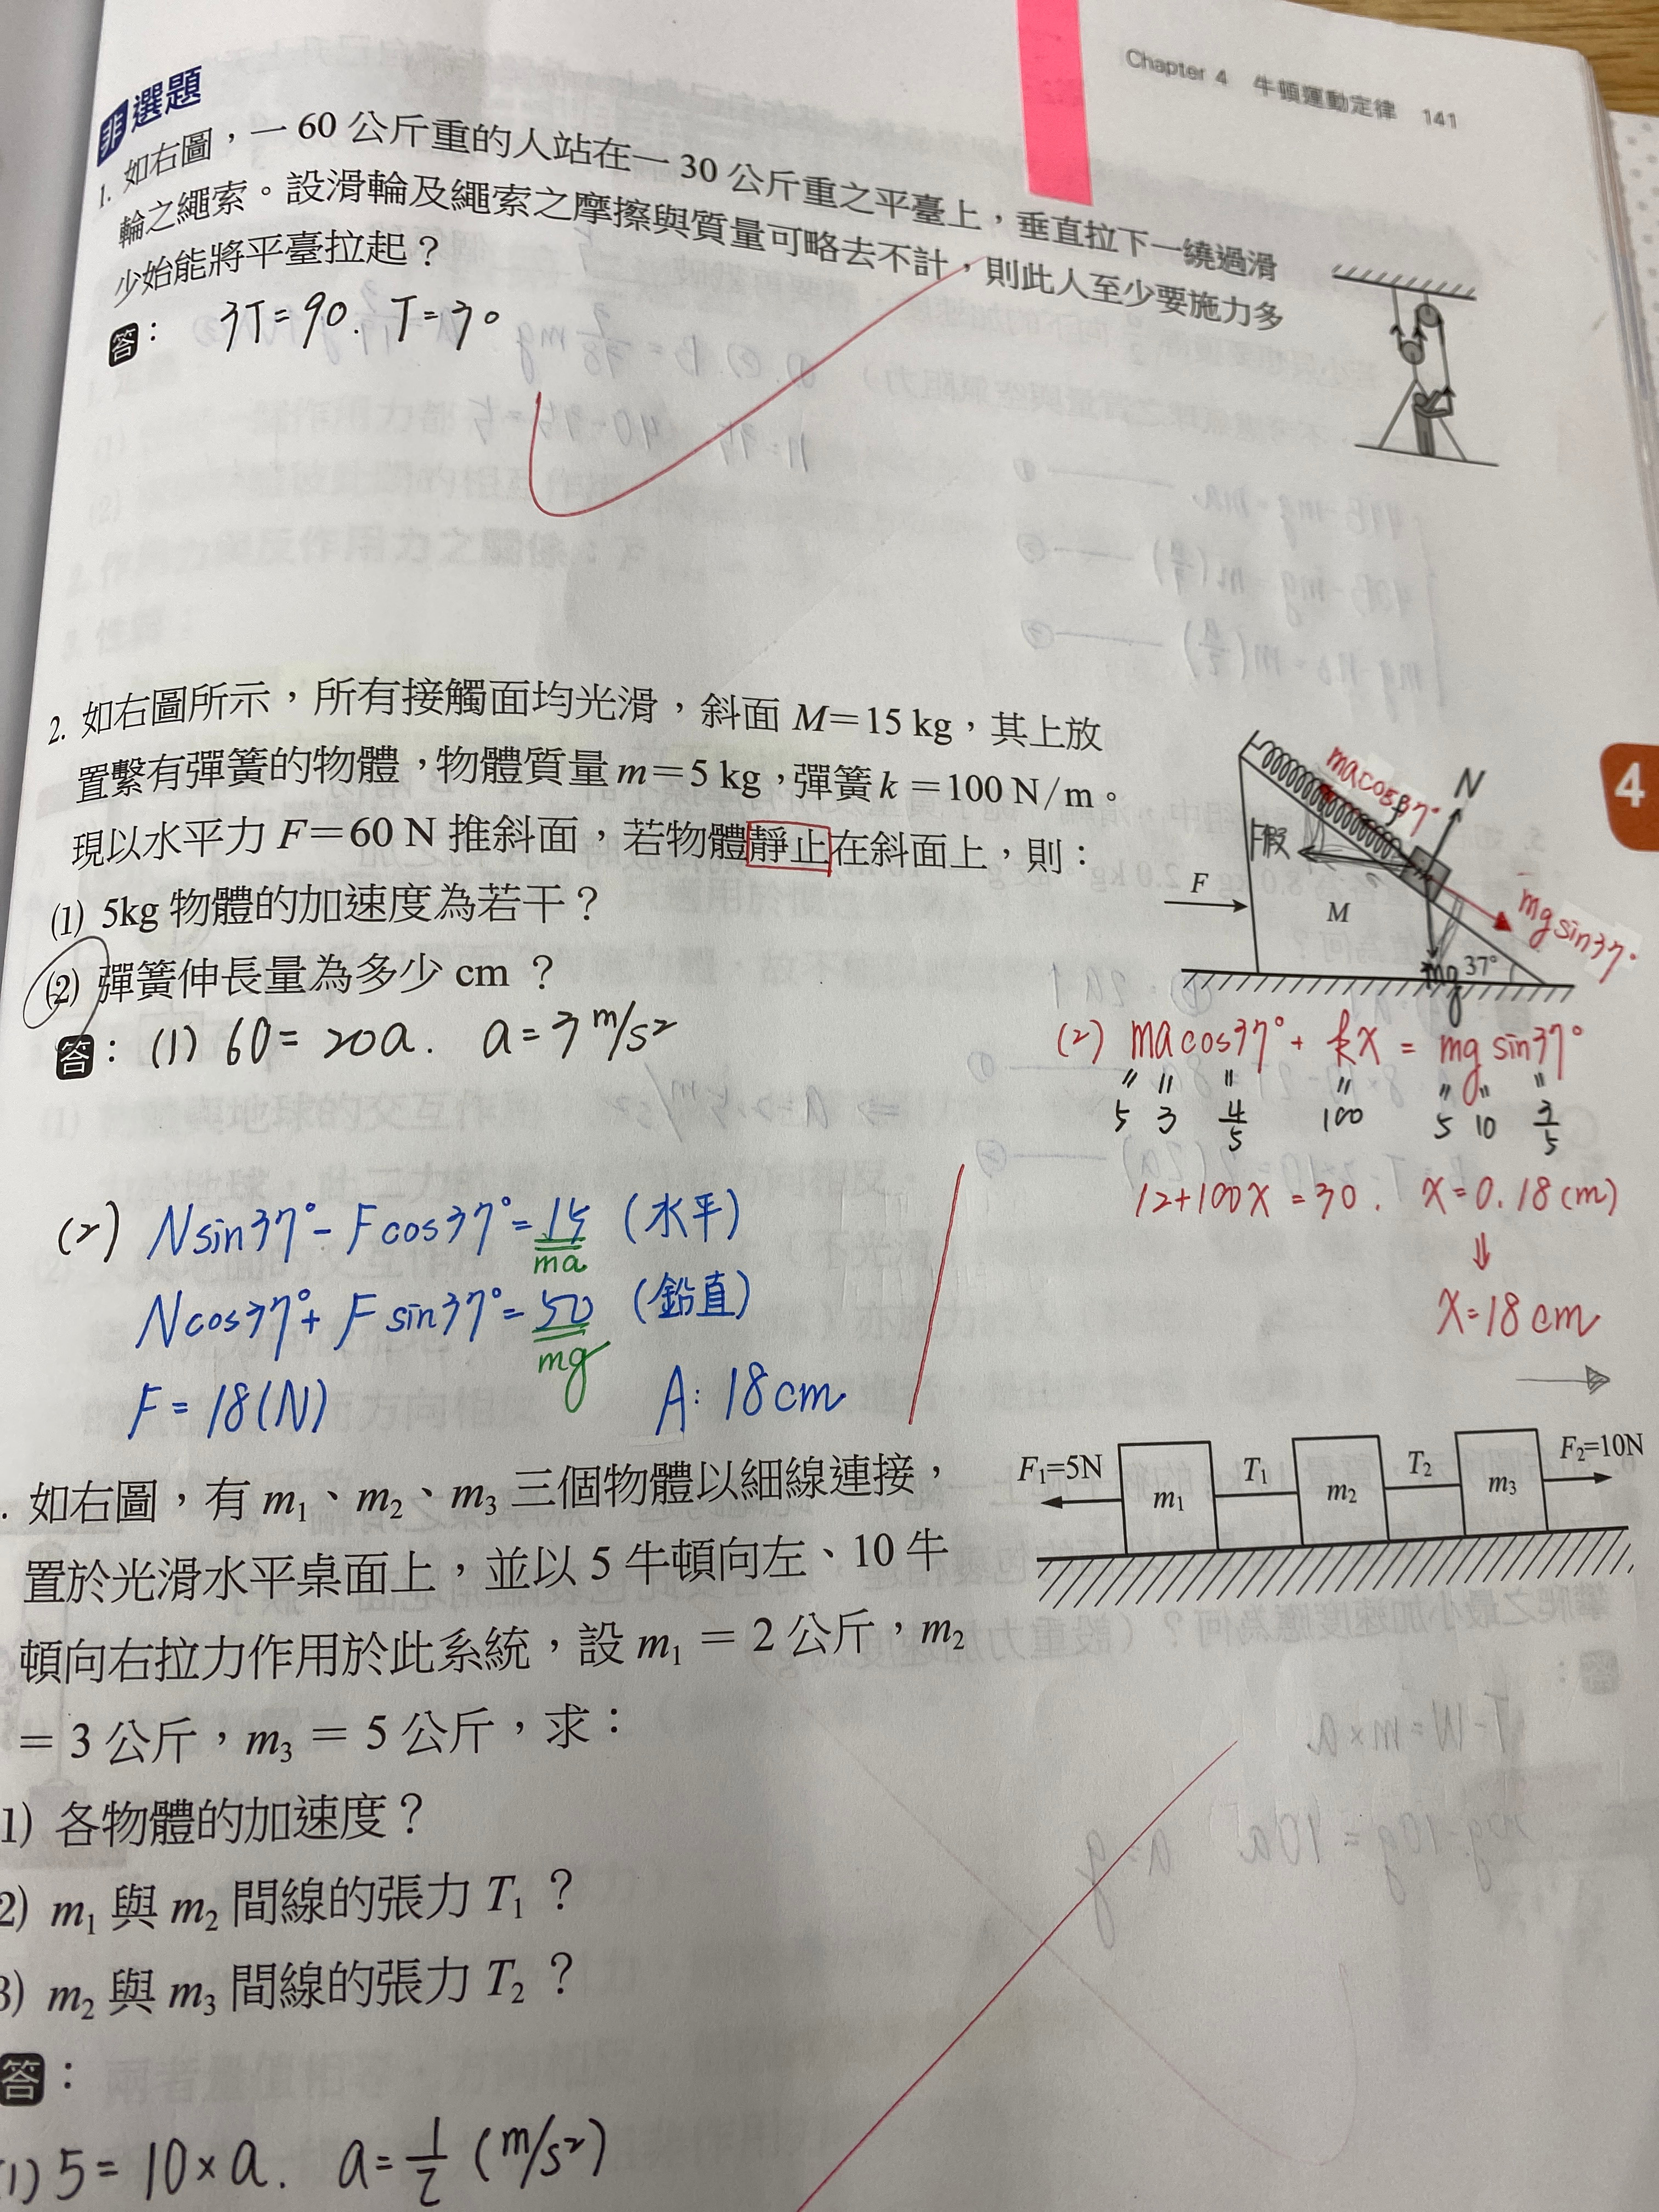 Chapter 4 牛頓運動定律 141
非選題
1. 如右圖，一 60 公斤重的人站在一 30 公斤重之平臺上，垂直拉下一繞過滑
輪之繩索。設滑輪及繩索之摩擦與質量可略去不計，則此人至少要施力多
少始能將平臺拉起？
答： 3T=90. T=30
2. 如右圖所示，所有接觸面均光滑，斜面 M=15 kg，其上放
置繫有彈簧的物體，物體質量 m=5 kg，彈簧 k=100 N/m。
現以水平力 F=60 N 推斜面，若物體靜止在斜面上，則：
(1) 5kg 物體的加速度為若干？
(2) 彈簧伸長量為多少 cm？
macos37°
N
F假
F
M
mg
37°
mgsin37°
4
答： (1) 60=20a. a=3 m/s²
(2) macos37°+kx=mgsin37°
" " " " " " "
5 3 4/5 100 5 10 3/5
12+100x=30. x=0.18(m)
⇓
x=18cm
(2) Nsin37°-Fcos37°=15 (水平)
ma
Ncos37°+Fsin37°=50 (鉛直)
mg
F=18(N) A: 18cm
. 如右圖，有 m₁、m₂、m₃ 三個物體以細線連接，
置於光滑水平桌面上，並以 5 牛頓向左、10 牛
頓向右拉力作用於此系統，設 m₁ = 2 公斤，m₂
= 3 公斤，m₃ = 5 公斤，求：
F₁=5N m₁ T₁ m₂ T₂ m₃ F₂=10N
1) 各物體的加速度？
2) m₁ 與 m₂ 間線的張力 T₁？
3) m₂ 與 m₃ 間線的張力 T₂？
答：
(1) 5=10×a. a=1/2 (m/s²)